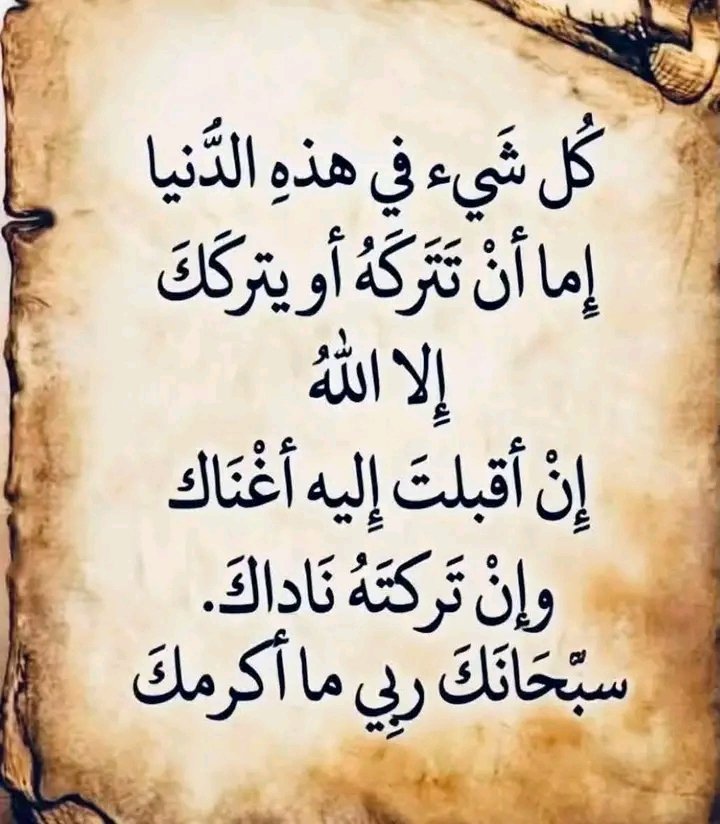 كُل شَيء في هذهِ الدُّنيا
إِما أنْ تَتَركَهُ أو يتركَكَ
إِلا اللهُ
إِنْ أقبلتَ إِليه أغْنَاك
وإنْ تَركتَهُ نَاداكَ.
سبّحَانَكَ ربِي ما أكرمكَ